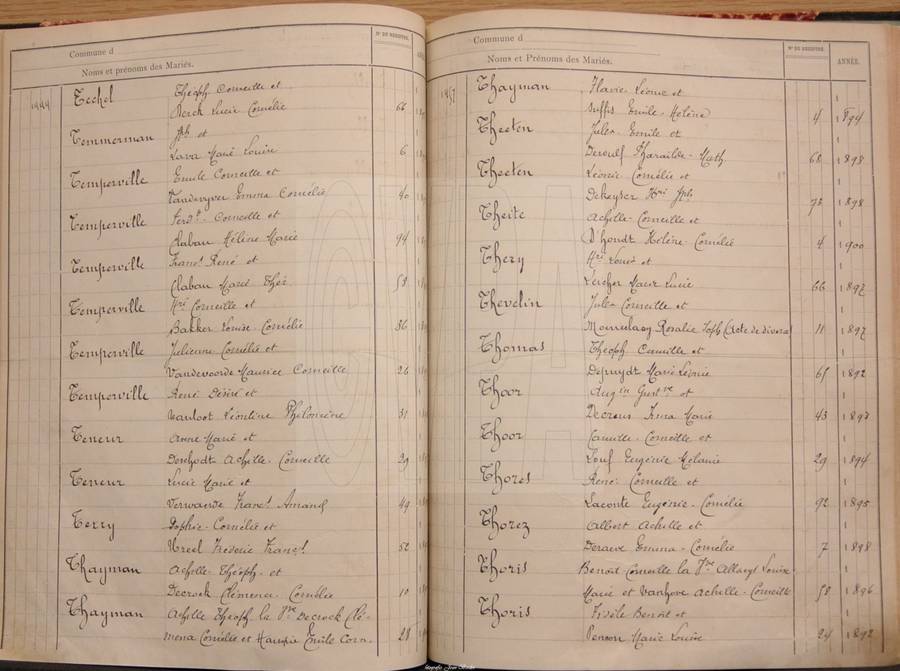 Commune d
N° DU REGISTRE.
Noms et prénoms des Mariés.
Techel Théoph Corneille et
Derck Lucie Cornélie 66
Temmerman Jph et
Lava Marie Louise 6
Temperville Emile Corneille et
Vandevyver Emma Cornélie 40
Temperville Ferd^d Corneille et
Claban Hélène Marie 94
Temperville Franç^s René et
Claban Marie Thér 58
Temperville Hri Corneille et
Bakker Louise Cornélie 36
Temperville Julienne Cornélie et
Vandevoorde Maurice Corneille 26
Temperville René Désiré et
Vanloot Léontine Philomène 31
Teneur Anne Marie et
Deschodt Achille Corneille 29
Teneur Lucie Marie et
Verwaerde Franç^s Amand 49
Terry Sophie Cornélie et
Ureel Frédéric Franç^s 52
Thayman Achille Théoph et
Decrock Clémence Cornélie 10
Thayman Achille Théoph la V^ve Decrock Clé-
mena Cornélie et Emile Corn. 28
Commune d
N° DU REGISTRE.
ANNÉE.
Noms et Prénoms des Mariés.
Thayman Flavie Léonie et
Emile Helène 4 1894
Theeten Jules Emile et
Pharailde Math 68 1898
Theeten Léonie Cornélie et
Dekeyser Hri Jph 78 1898
Theite Achille Corneille et
D'hondt Hélène Cornélie 4 1900
Thery Hri Louis et
Marie Lucie 66 1892
Thevelin Jules Corneille et
Rosalie Joph (acte de divorce) 11 1897
Thomas Théoph Camille et
Depuydt Marie Léonie 65 1892
Thoor Augin Gust^ve et
Decrous Irma Marie 43 1897
Thoor Camille Corneille et
Louf Eugénie Mélanie 29 1894
Thores René Corneille et
Laconte Eugénie Cornélie 92 1895
Thorez Albert Achille et
Deraeve Emma Cornélie 7 1898
Thoris Benoît Corneille la V^ve Allaeys Louise
Marie et Vanhove Achille Corneille 58 1896
Thoris Fidèle Benoît et
Penson Marie Louise 24 1892